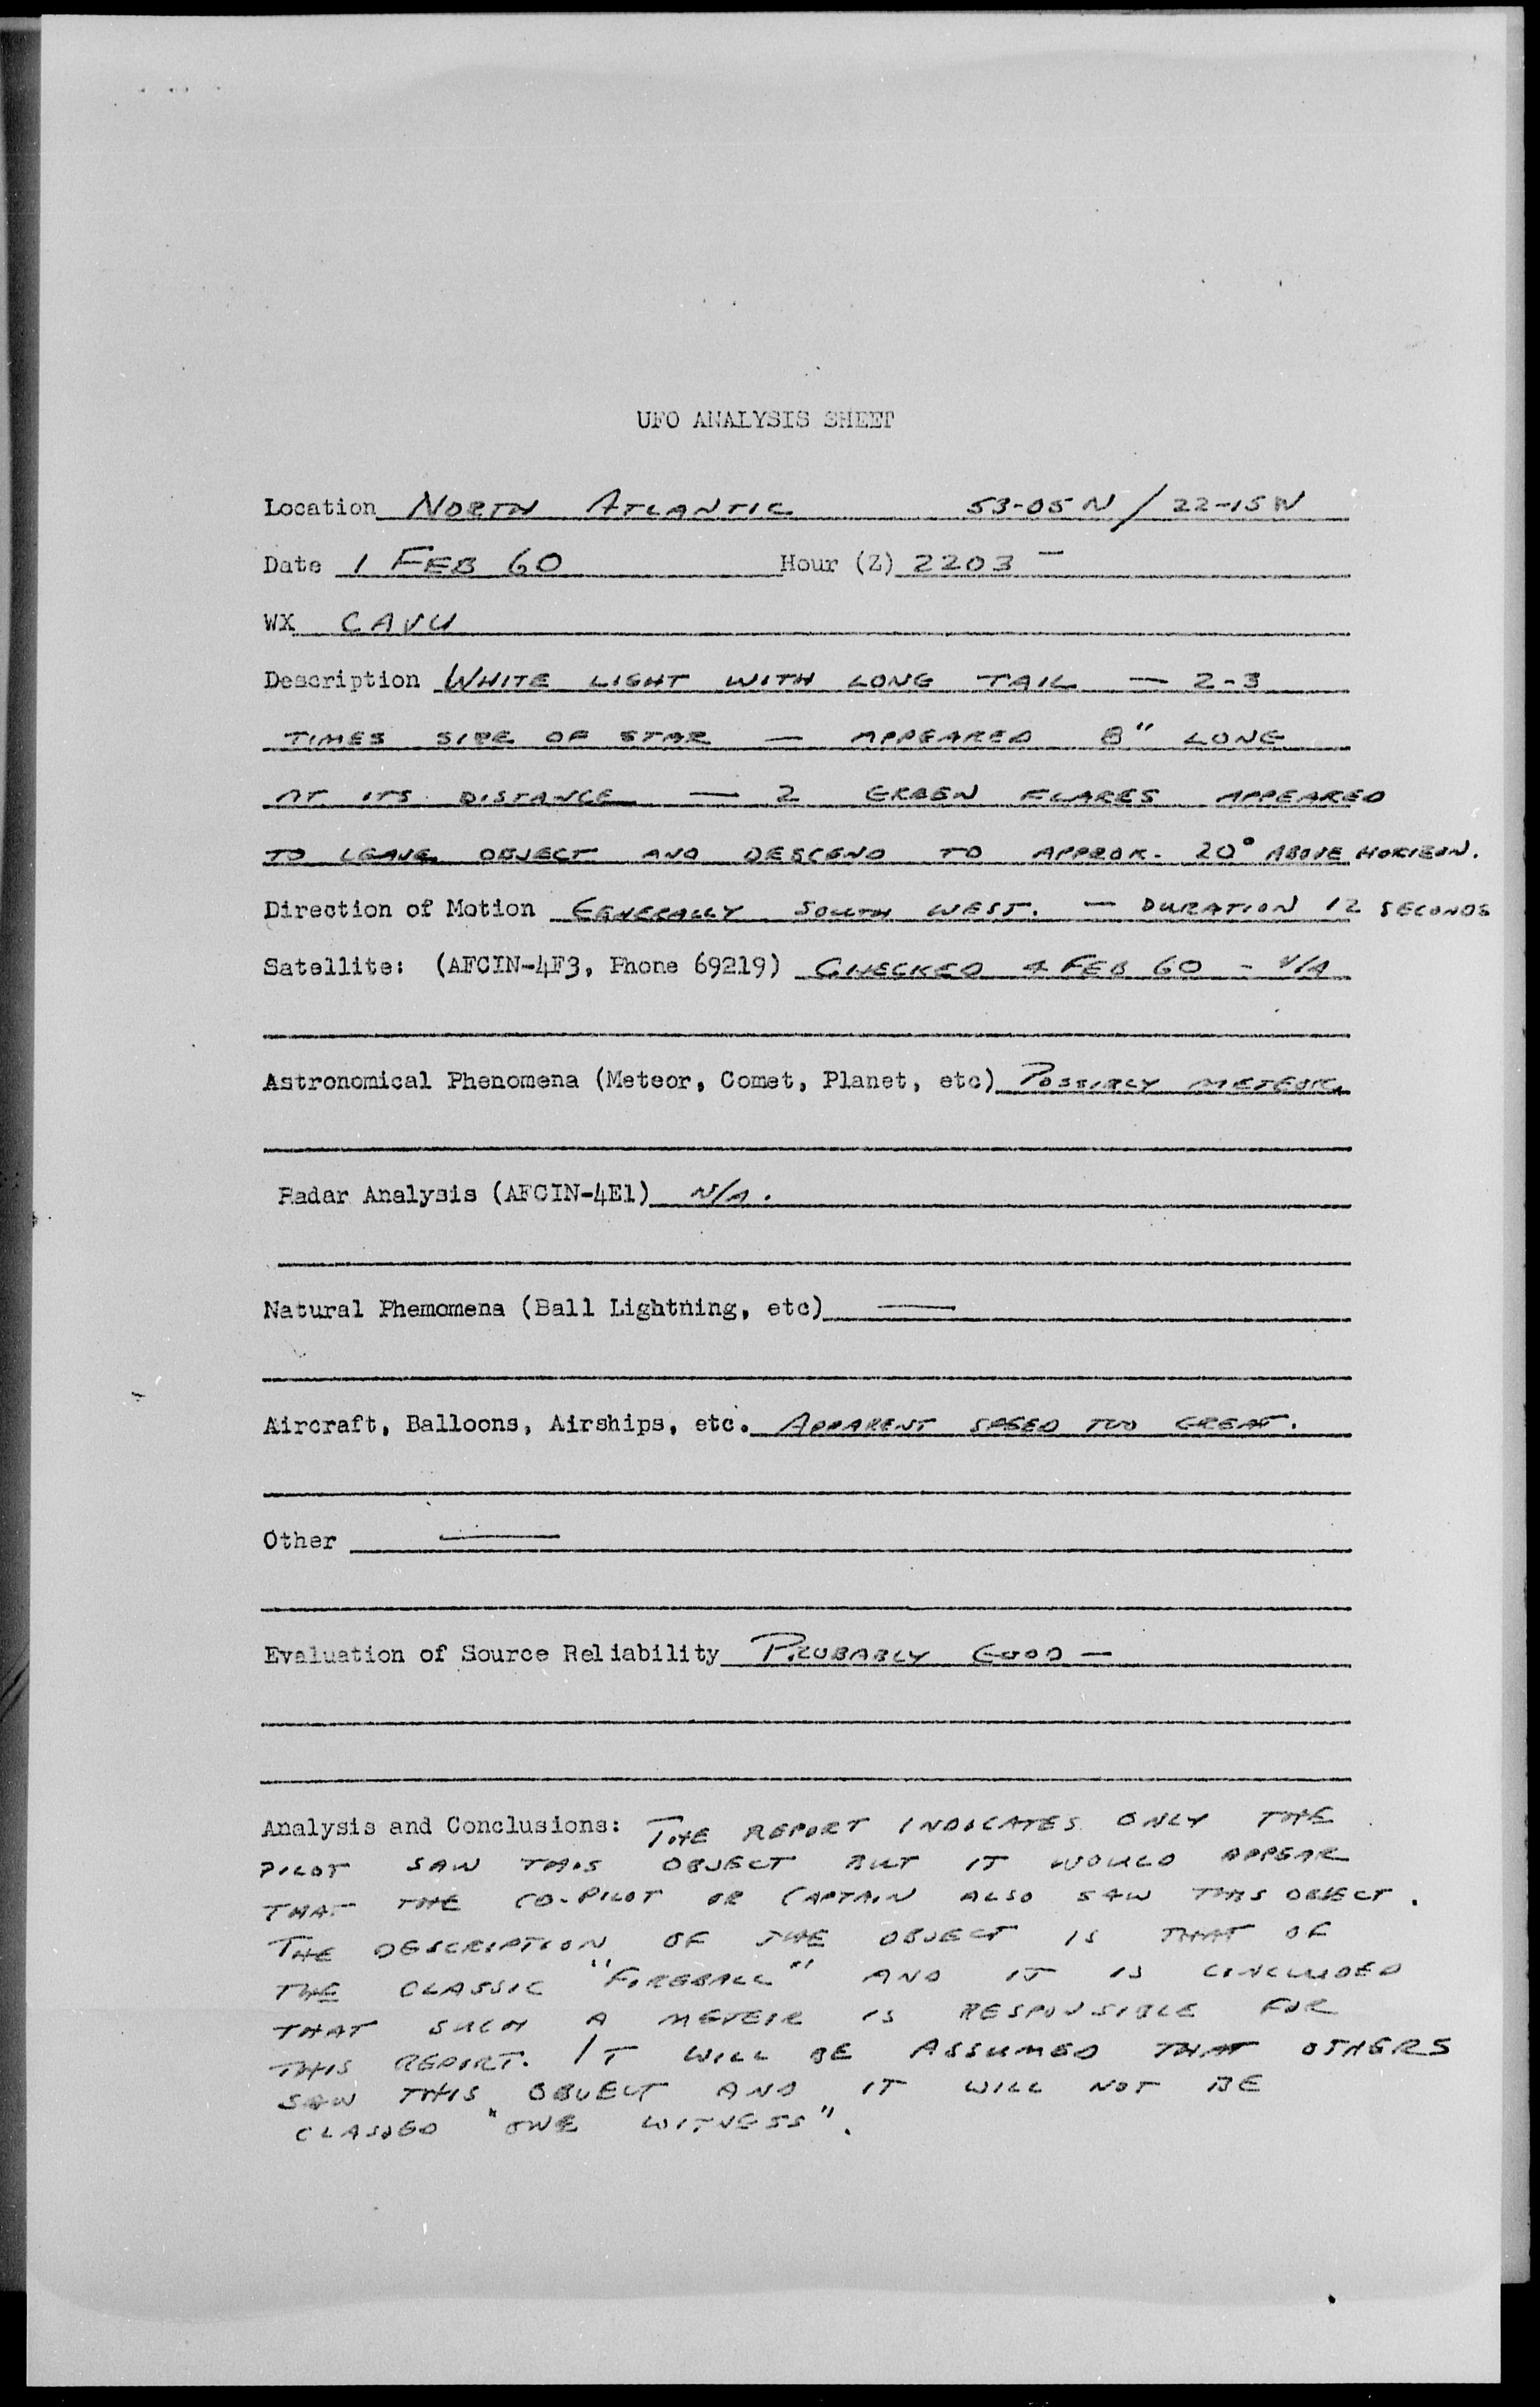 UFO ANALYSIS SHEET
Location NORTH ATLANTIC 53-05 N / 22-15 W
Date 1 FEB 60 Hour (Z) 2203 —
WX CAVU
Description WHITE LIGHT WITH LONG TAIL — 2-3
TIMES SIZE OF STAR — APPEARED 8" LONG
AT ITS DISTANCE — 2 GREEN FLARES APPEARED
TO LEAVE OBJECT AND DESCEND TO APPROX. 20° ABOVE HORIZON.
Direction of Motion GENERALLY SOUTH WEST. — DURATION 12 SECONDS
Satellite: (AFCIN-4F3, Phone 69219) CHECKED 4 FEB 60 - N/A
Astronomical Phenomena (Meteor, Comet, Planet, etc) POSSIBLY METEOR.
Radar Analysis (AFCIN-4E1) N/A.
Natural Phemomena (Ball Lightning, etc) —
Aircraft, Balloons, Airships, etc. APPARENT SPEED TOO GREAT.
Other —
Evaluation of Source Reliability PROBABLY GOOD —
Analysis and Conclusions: THE REPORT INDICATES ONLY THE
PILOT SAW THIS OBJECT BUT IT WOULD APPEAR
THAT THE CO-PILOT OR CAPTAIN ALSO SAW THIS OBJECT.
THE DESCRIPTION OF THE OBJECT IS THAT OF
THE CLASSIC "FIREBALL" AND IT IS CONCLUDED
THAT SUCH A METEOR IS RESPONSIBLE FOR
THIS REPORT. IT WILL BE ASSUMED THAT OTHERS
SAW THIS OBJECT AND IT WILL NOT BE
CLASSED "ONE WITNESS".